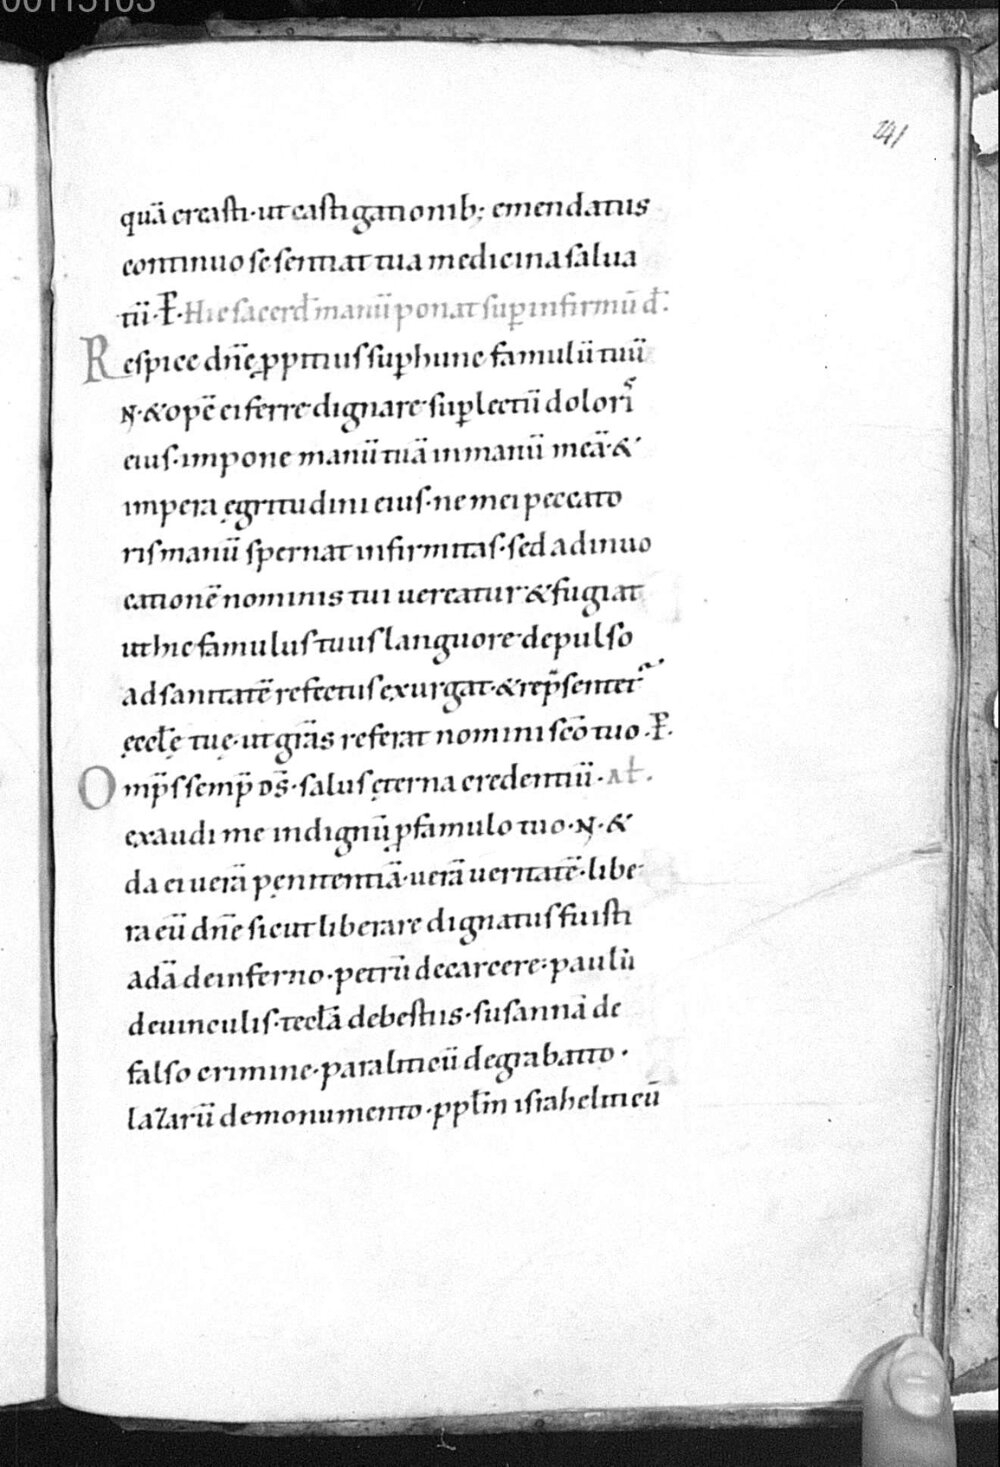 00115103
241
quā creasti·ut castigationib; emendatus
continuo se sentiat tua medicina salua
tū·P̄·Hic sacerđ manū ponat sup infirmū đ:
Respice dn̄e ppitius sup hunc famulū tuū
N·&opē ei ferre dignare sup lectū dolorı̄s
eius·impone manū tuā in manū meā·&
impera ęgritudini eius·ne mei peccato
ris manū spernat infirmitas·sed ad inuo
cationē nominis tui uereatur &fugiat
ut hic famulus tuus languore depulso
ad sanitatē refectus exurgat·&rep̄sentet᷑
ęccłę tuę·ut gr̄as referat nomini sc̄o tuo·P̄·
Omp̄s semp̄ ds̄·salus ęterna credentiū·Ał·
exaudi me indignū p famulo tuo·N·&
da ei uerā pęnitentiā·uerā ueritatē·libe
ra eū dn̄e sicut liberare dignatus fuisti
adā de inferno·petrū de carcere·paulū
de uinculis·tecłā de bestiis·susannā de
falso crimine·paraliticū de grabatto·
lazarū de monumento·ppłm israheliticū